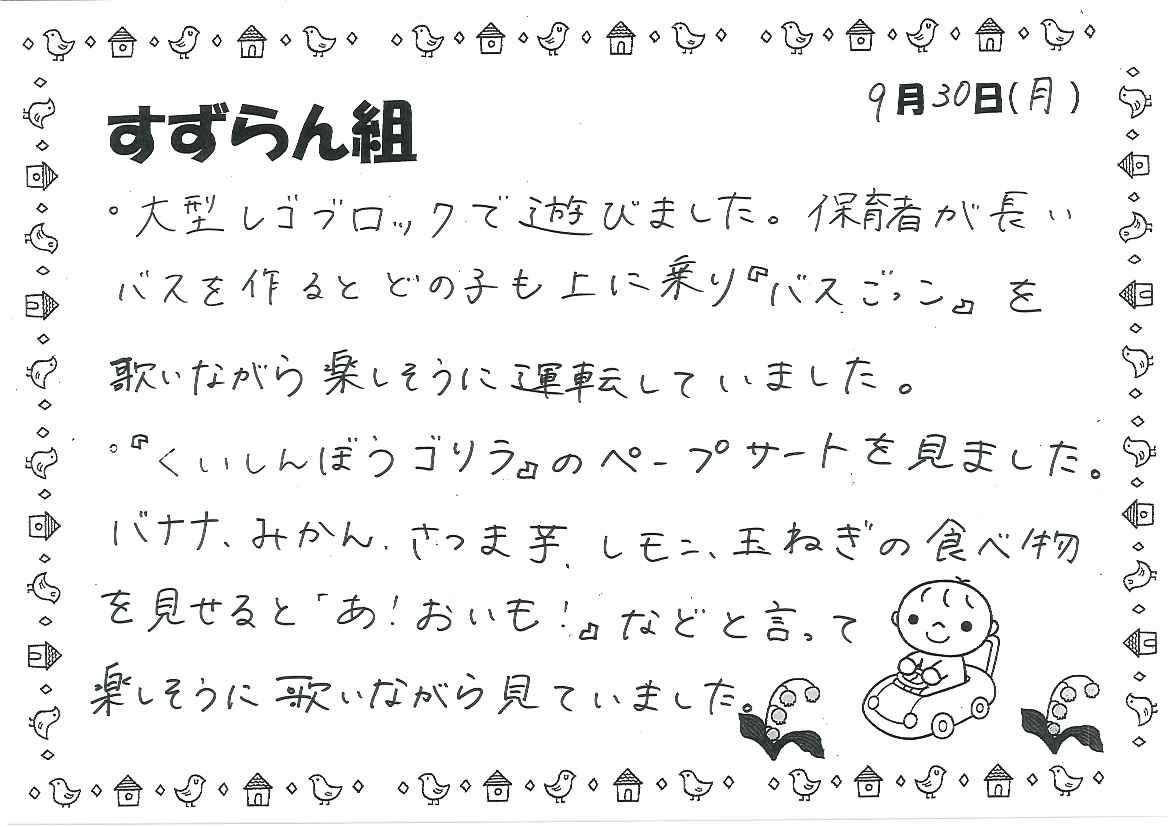 9月30日(月)
すずらん組
・大型レゴブロックで遊びました。保育者が長い
バスを作るとどの子も上に乗り『バスごっこ』を
歌いながら楽しそうに運転していました。
・『くいしんぼうゴリラ』のペープサートを見ました。
バナナ、みかん、さつま芋、レモン、玉ねぎの食べ物
を見せると「あ!おいも!』などと言って
楽しそうに歌いながら見ていました。